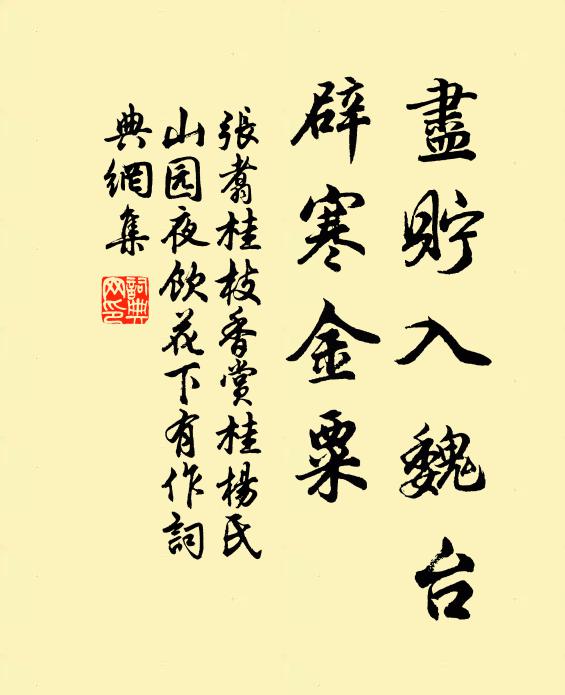 盡貯入魏台
辟寒金粟
張翥桂枝香賞桂楊氏
山园夜飲花下有作詞
典網集
詞典
网印